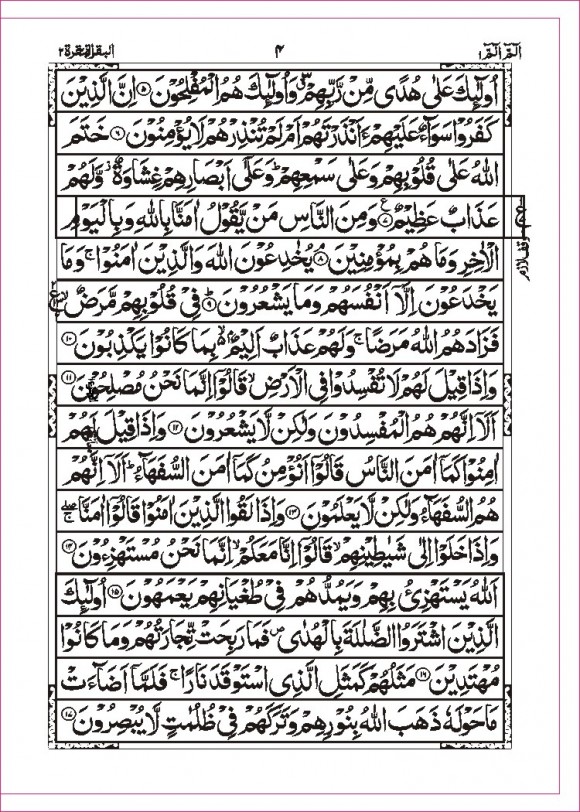 الٓمّٓ الٓمّٓ ۱
۴
البقرة ۲
اُولٰٓئِكَ عَلٰى هُدًى مِّنْ رَّبِّهِمْ ۗ وَاُولٰٓئِكَ هُمُ الْمُفْلِحُوْنَ ۵ اِنَّ الَّذِيْنَ
كَفَرُوْا سَوَآءٌ عَلَيْهِمْ ءَاَنْذَرْتَهُمْ اَمْ لَمْ تُنْذِرْهُمْ لَا يُؤْمِنُوْنَ ۶ خَتَمَ
اللّٰهُ عَلٰى قُلُوْبِهِمْ وَعَلٰى سَمْعِهِمْ ؕ وَعَلٰٓى اَبْصَارِهِمْ غِشَاوَةٌ ز وَّلَهُمْ
عَذَابٌ عَظِيْمٌ ۷ ع وَمِنَ النَّاسِ مَنْ يَّقُوْلُ اٰمَنَّا بِاللّٰهِ وَبِالْيَوْمِ
وقف لازم
الْاٰخِرِ وَمَا هُمْ بِمُؤْمِنِيْنَ ۘ ۸ يُخٰدِعُوْنَ اللّٰهَ وَالَّذِيْنَ اٰمَنُوْا ۚ وَمَا
يَخْدَعُوْنَ اِلَّآ اَنْفُسَهُمْ وَمَا يَشْعُرُوْنَ ؕ ۹ فِىْ قُلُوْبِهِمْ مَّرَضٌ ۙ
فَزَادَهُمُ اللّٰهُ مَرَضًا ۚ وَلَهُمْ عَذَابٌ اَلِيْمٌۢ ۙ بِمَا كَانُوْا يَكْذِبُوْنَ ۱۰
وَاِذَا قِيْلَ لَهُمْ لَا تُفْسِدُوْا فِى الْاَرْضِ ۙ قَالُوْٓا اِنَّمَا نَحْنُ مُصْلِحُوْنَ ۱۱
اَلَآ اِنَّهُمْ هُمُ الْمُفْسِدُوْنَ وَلٰكِنْ لَّا يَشْعُرُوْنَ ۱۲ وَاِذَا قِيْلَ لَهُمْ
اٰمِنُوْا كَمَآ اٰمَنَ النَّاسُ قَالُوْٓا اَنُؤْمِنُ كَمَآ اٰمَنَ السُّفَهَآءُ ؕ اَلَآ اِنَّهُمْ
هُمُ السُّفَهَآءُ وَلٰكِنْ لَّا يَعْلَمُوْنَ ۱۳ وَاِذَا لَقُوا الَّذِيْنَ اٰمَنُوْا قَالُوْٓا اٰمَنَّا ۖۚ
وَاِذَا خَلَوْا اِلٰى شَيٰطِيْنِهِمْ ۙ قَالُوْٓا اِنَّا مَعَكُمْ ۙ اِنَّمَا نَحْنُ مُسْتَهْزِءُوْنَ ۱۴
اَللّٰهُ يَسْتَهْزِئُ بِهِمْ وَيَمُدُّهُمْ فِىْ طُغْيَانِهِمْ يَعْمَهُوْنَ ۱۵ اُولٰٓئِكَ
الَّذِيْنَ اشْتَرَوُا الضَّلٰلَةَ بِالْهُدٰى ص فَمَا رَبِحَتْ تِّجَارَتُهُمْ وَمَا كَانُوْا
مُهْتَدِيْنَ ۱۶ مَثَلُهُمْ كَمَثَلِ الَّذِى اسْتَوْقَدَ نَارًا ۚ فَلَمَّآ اَضَآءَتْ
مَا حَوْلَهٗ ذَهَبَ اللّٰهُ بِنُوْرِهِمْ وَتَرَكَهُمْ فِىْ ظُلُمٰتٍ لَّا يُبْصِرُوْنَ ۱۷